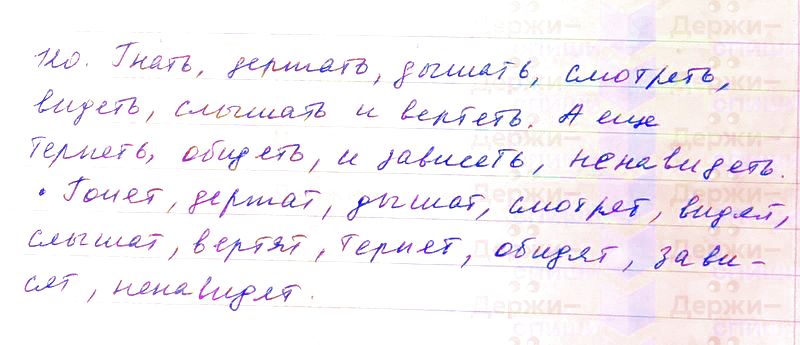 120. Гнать, держать, дышать, смотреть,
видеть, слышать и вертеть. А еще
терпеть, обидеть, и зависеть, ненавидеть.
• Гонят, держат, дышат, смотрят, видят,
слышат, вертят, терпят, обидят, зави-
сят, ненавидят.
Держи-
спиши
Держи-
спиши
Держи-
Держи-
спиши
Держи-
спиши